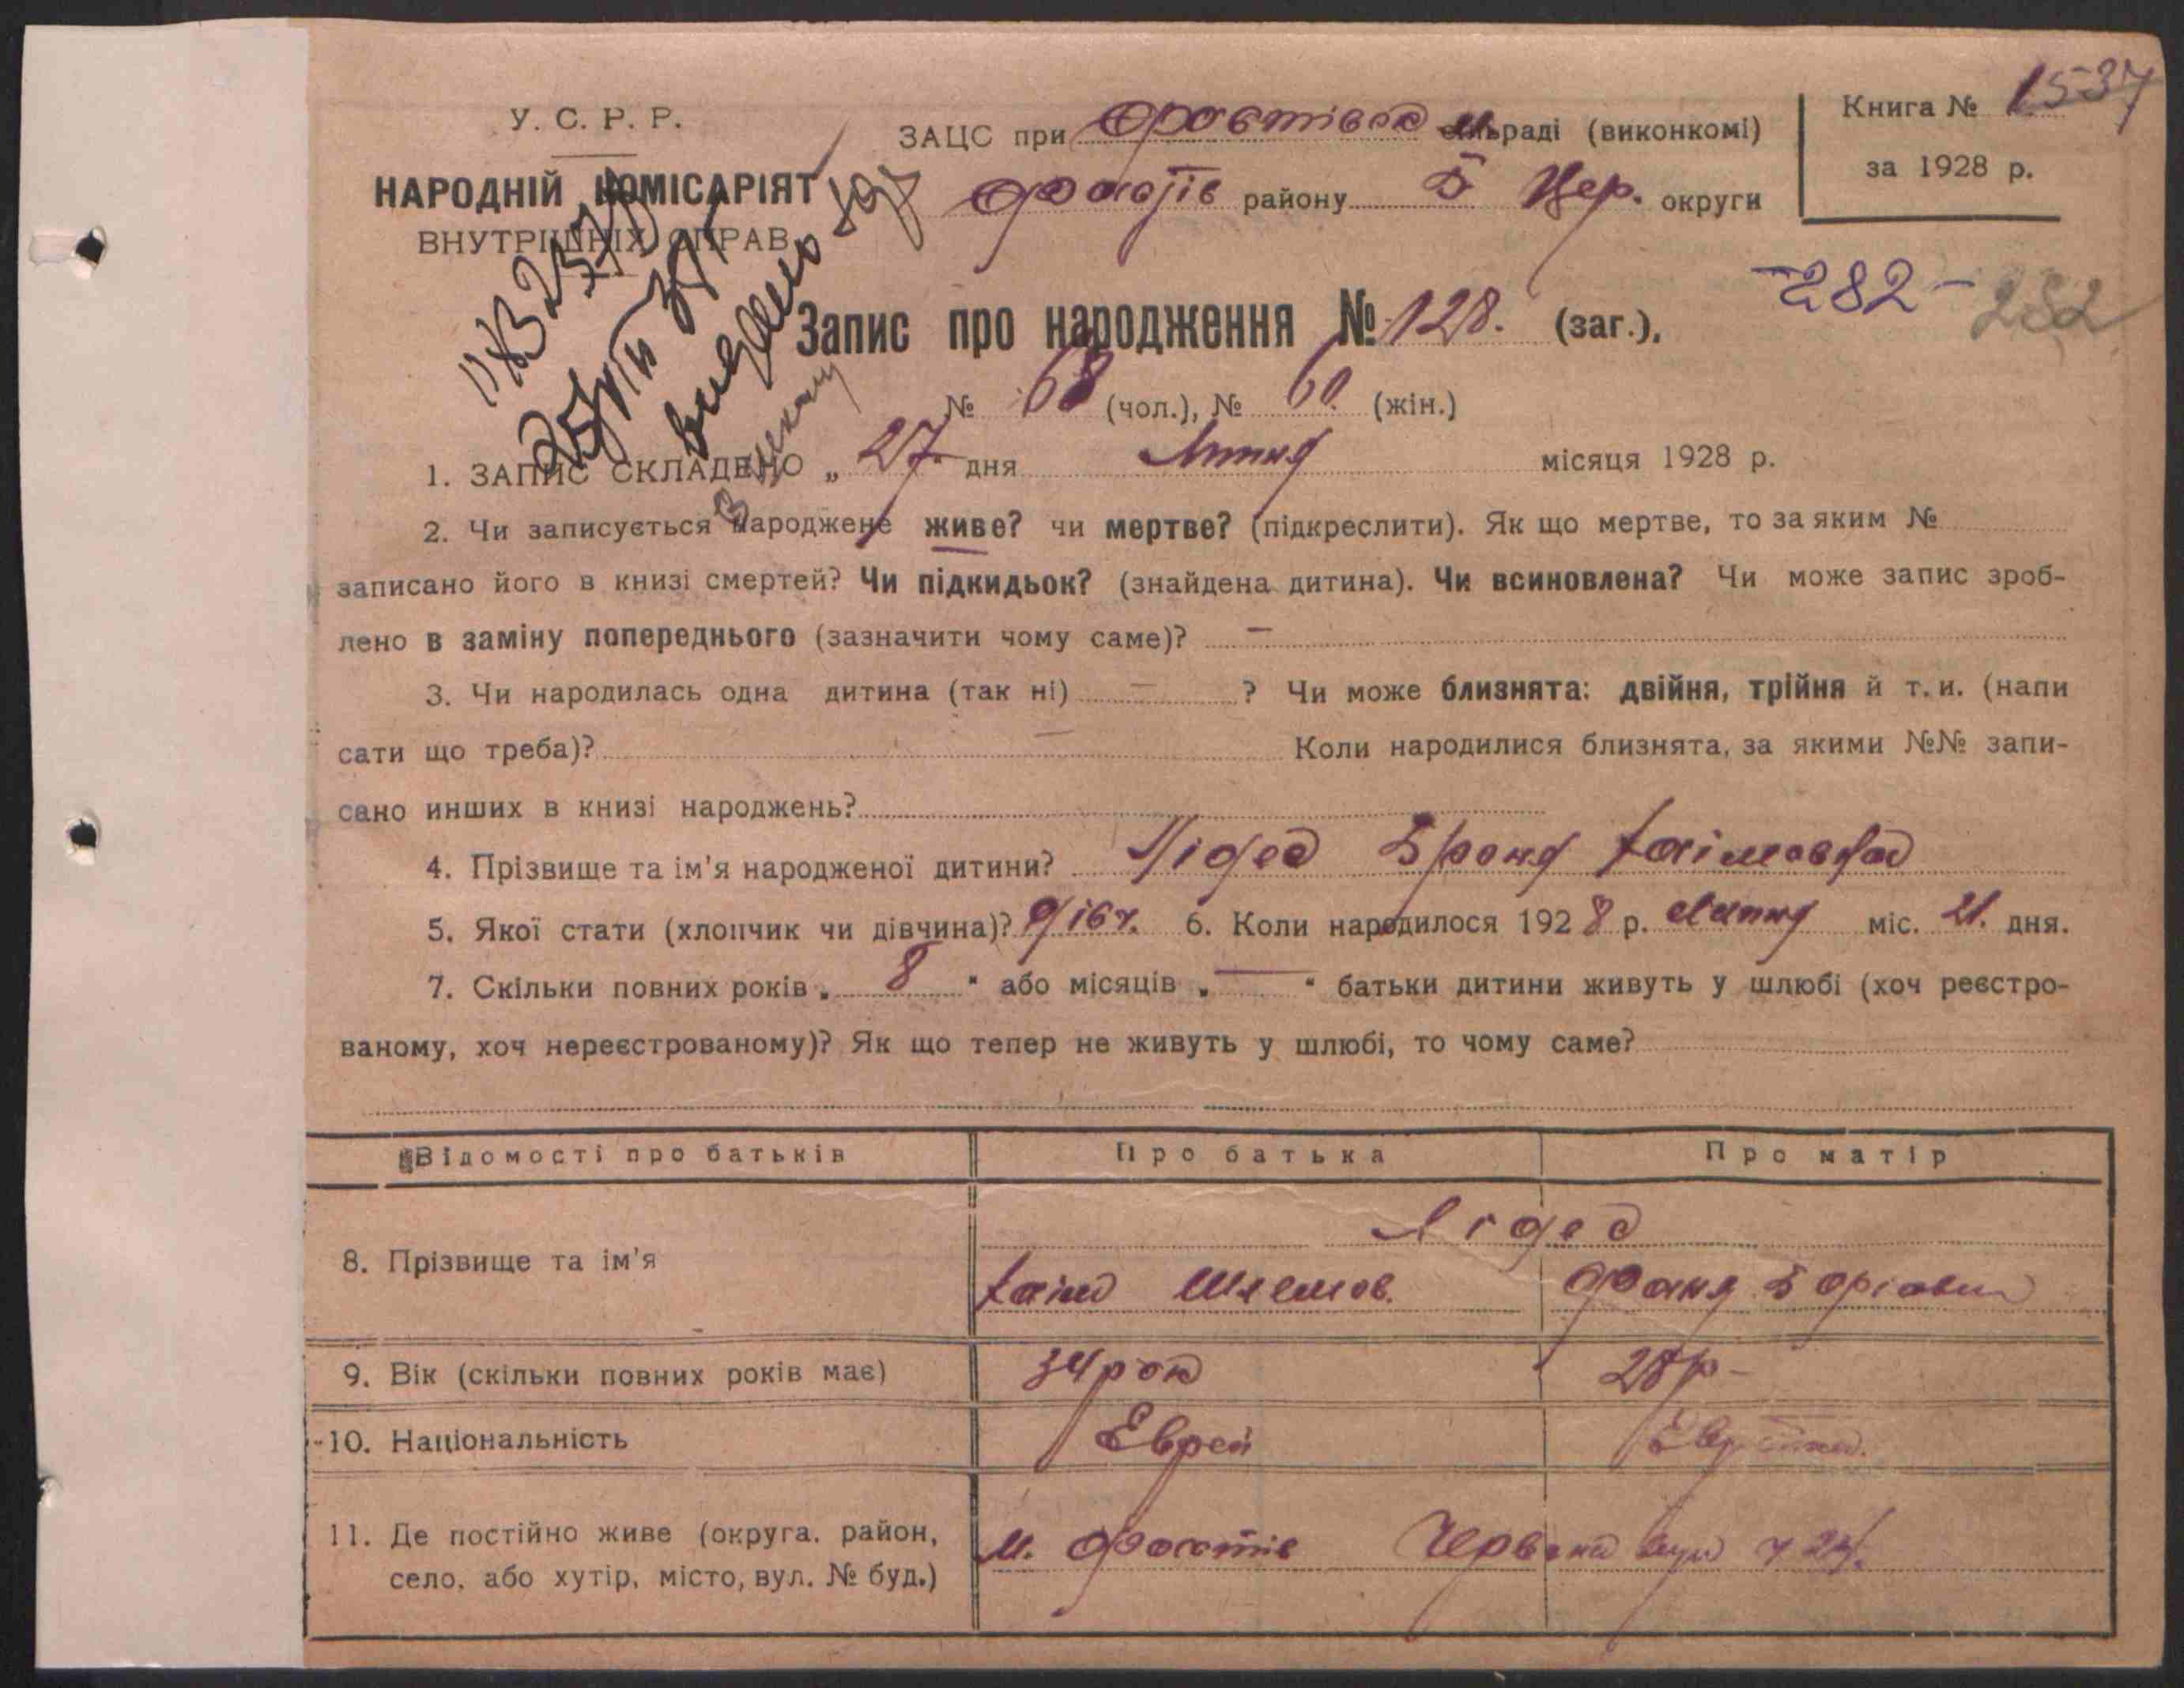 У. С. Р. Р.
НАРОДНІЙ КОМІСАРІЯТ
ВНУТРІШНІХ СПРАВ
ЗАЦС при Фастівск м. раді (виконкомі)
Фастів району Б Цер. округи
Книга № 1537
за 1928 р.
-282- 282
видано
Запис про народження № 128. (заг.),
№ 68 (чол.), № 60. (жін.)
1. ЗАПИС СКЛАДЕНО „ 27 “ дня Липня місяця 1928 р.
2. Чи записується народжене живе? чи мертве? (підкреслити). Як що мертве, то за яким №
записано його в книзі смертей? Чи підкидьок? (знайдена дитина). Чи всиновлена? Чи може запис зроб-
лено в заміну попереднього (зазначити чому саме)? —
3. Чи народилась одна дитина (так ні) — ? Чи може близнята: двійня, трійня й т. и. (напи
сати що треба)? — Коли народилися близнята, за якими №№ запи-
сано инших в книзі народжень?
4. Прізвище та ім'я народженої дитини? Броня Хаімовна
5. Якої стати (хлопчик чи дівчина)? дівч. 6. Коли народилося 1928 р. Липня міс. 21. дня.
7. Скільки повних років „ 8 “ або місяців „ — “ батьки дитини живуть у шлюбі (хоч реєстро-
ваному, хоч нереєстрованому)? Як що тепер не живуть у шлюбі, то чому саме?
Відомості про батьків Про батька Про матір
8. Прізвище та ім'я
Хаім Шлемов. Фаня Борісовн
9. Вік (скільки повних років має) 34 рок 28 р-
10. Національність Еврей Еврейка.
11. Де постійно живе (округа. район,
село, або хутір, місто, вул. № буд.)
м. Фастів Червона вул ч 24.